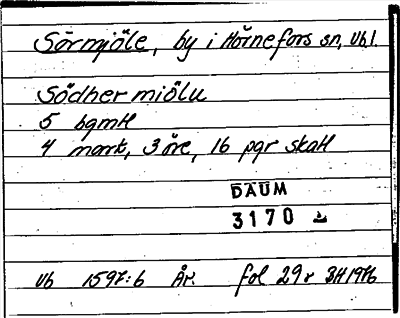 Sörmjöle, by i Hörnefors sn, Vbl.
Södher miölu
5 bgmtl
4 mark, 3 öre, 16 pgr skatt
DAUM
3170
Vb 1597:6 År. fol 29r BH 1976